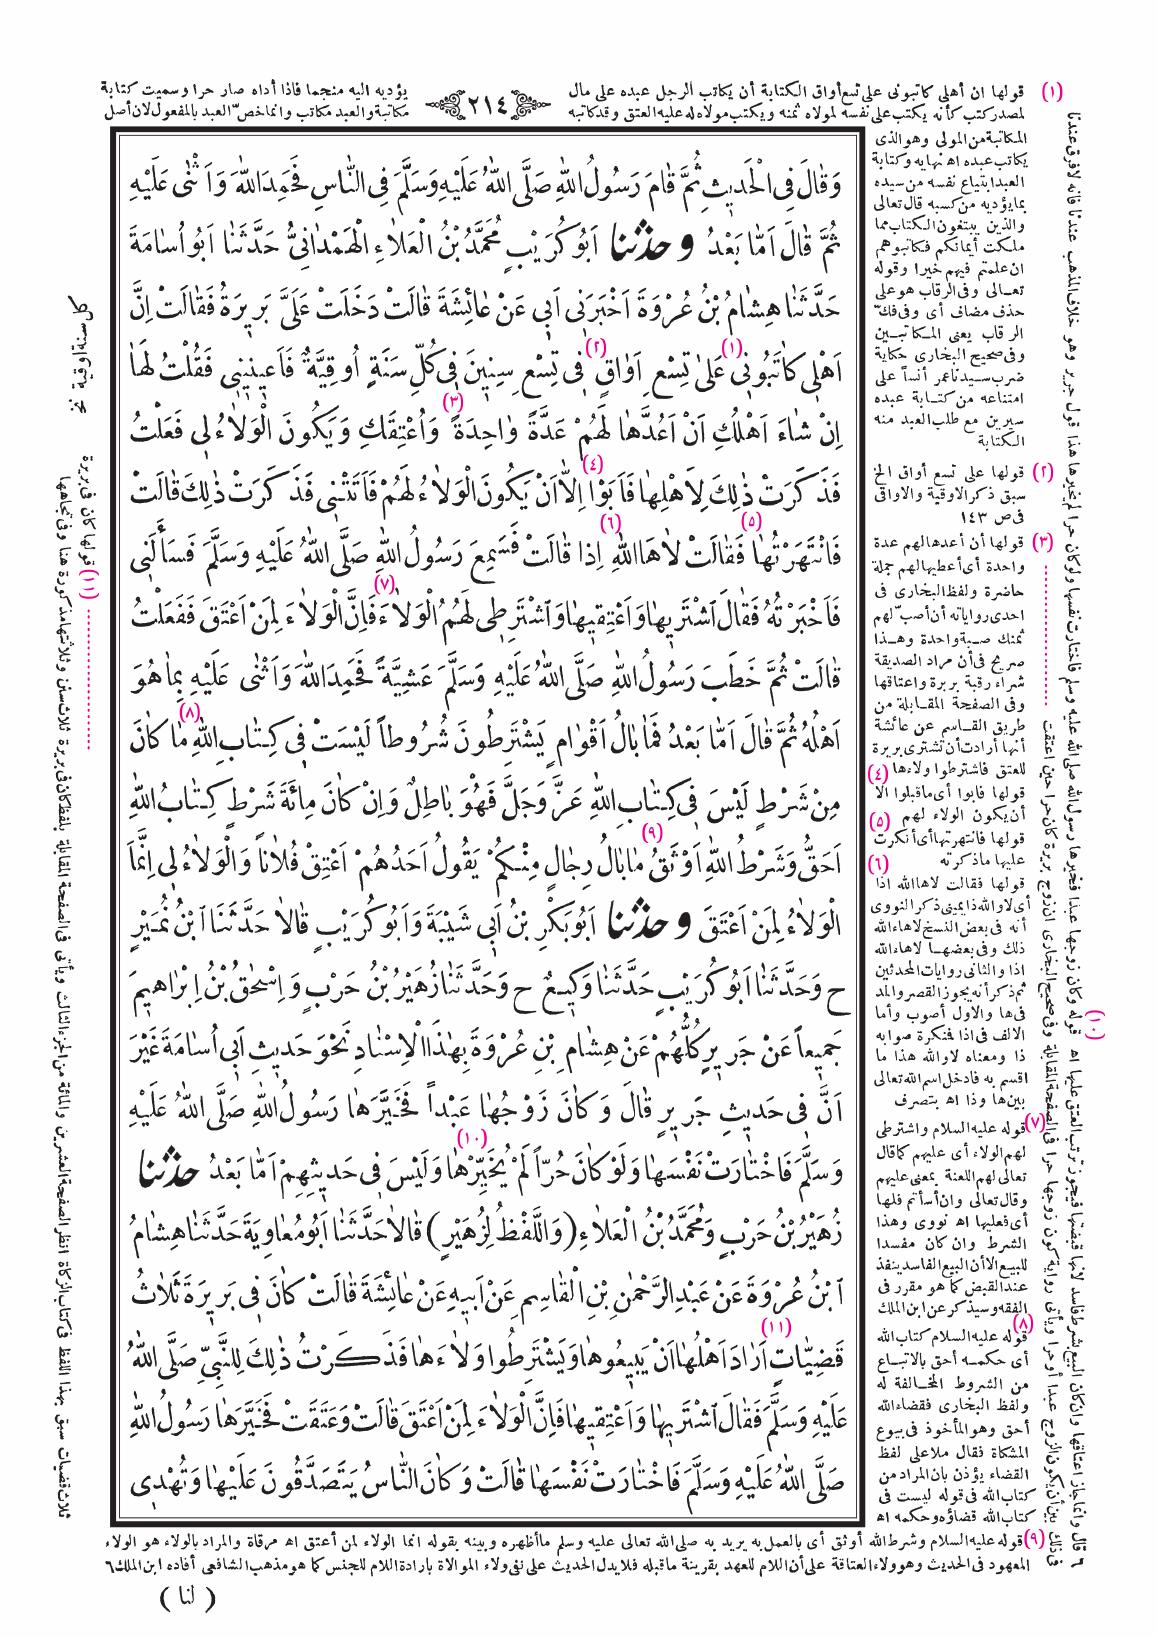 (١) قولها ان أهلى كاتبونى على تسع أواق الكتابة أن يكاتب الرجل عبده على مال
لمصدر كتب كأنه يكتب على نفسه لمولاه ثمنه ويكتب مولاه له عليه العتق وقد كاتبه
٢١٤
يؤديه اليه منجما فاذا أداه صار حرا وسميت كتابة
مكاتبة والعبد مكاتب وانما خص العبد بالمفعول لان أصل
المكاتبة من المولى وهو الذى
يكاتب عبده اه نهايه وكتابة
العبد ابتياع نفسه من سيده
بما يؤديه من كسبه قال تعالى
والذين يبتغون الكتاب مما
ملكت أيمانكم فكاتبوهم
ان علمتم فيهم خيرا وقوله
تعالى وفى الرقاب هو على
حذف مضاف أى وفى فك
الرقاب يعنى المكاتبين
وفى صحيح البخارى حكاية
ضرب سيدنا عمر أنساً على
امتناعه من كتابة عبده
سيرين مع طلب العبد منه
الكتابة
(٢) قولها على تسع أواق الخ
سبق ذكر الاوقية والاواقى
فى ص ١٤٣
(٣) قولها أن أعدها لهم عدة
واحدة أى أعطيها لهم جملة
حاضرة ولفظ البخارى فى
احدى رواياته أن أصب لهم
ثمنك صبة واحدة وهذا
صريح فى أن مراد الصديقة
شراء رقبة بريرة واعتاقها
وفى الصفحة المقابلة من
طريق القاسم عن عائشة
أنها أرادت أن تشترى بريرة
للعتق فاشترطوا ولاءها (٤)
قولها فابوا أى ما قبلوا الا
أن يكون الولاء لهم (٥)
قولها فانتهرتها أى أنكرت
عليها ما ذكرته (٦)
قولها فقالت لاها الله اذا
أى لا والله ذا يمينى ذكر النووى
أنه فى بعض النسخ لاهاء الله
ذلك وفى بعضها لاهاء الله
اذا والثانى روايات المحدثين
ثم ذكر أنه يجوز القصر والمد
فى ها والاول أصوب وأما
الالف فى اذا فنكرة صوابه
ذا ومعناه لا والله هذا ما
اقسم به فادخل اسم الله تعالى
بين ها وذا اه بتصرف
(٧) قوله عليه السلام واشترطى
لهم الولاء أى عليهم كما قال
تعالى لهم اللعنة بمعنى عليهم
وقال تعالى وان أسأتم فلها
أى فعليها اه نووى وهذا
الشرط وان كان مفسدا
للبيع الا أن البيع الفاسد ينفذ
عند القبض كما هو مقرر فى
الفقه وسيذكر عن ابن الملك
(٨) قوله عليه السلام كتاب الله
أى حكمه أحق بالاتباع
من الشروط المخالفة له
ولفظ البخارى فقضاء الله
أحق وهو المأخوذ فى بيوع
المشكاة فقال ملا على لفظ
القضاء يؤذن بان المراد من
كتاب الله فى قوله ليست فى
كتاب الله قضاؤه وحكمه اه
وَقَالَ فِى الْحَدِيثِ ثُمَّ قَامَ رَسُولُ اللهِ صَلَّى اللهُ عَلَيْهِ وَسَلَّمَ فِى النَّاسِ فَحَمِدَ اللهَ وَاَثْنَى عَلَيْهِ
ثُمَّ قَالَ اَمَّا بَعْدُ وحدثنا اَبُو كُرَيْبٍ مُحَمَّدُ بْنُ الْعَلَاءِ الْهَمْدَانِىُّ حَدَّثَنَا اَبُو اُسَامَةَ
حَدَّثَنَا هِشَامُ بْنُ عُرْوَةَ اَخْبَرَنِى اَبِى عَنْ عَائِشَةَ قَالَتْ دَخَلَتْ عَلَىَّ بَرِيرَةُ فَقَالَتْ اِنَّ
اَهْلِى كَاتَبُونِى (١) عَلَى تِسْعِ اَوَاقٍ (٢) فِى تِسْعِ سِنِينَ فِى كُلِّ سَنَةٍ اُوقِيَّةٌ فَاَعِينِينِى فَقُلْتُ لَهَا
اِنْ شَاءَ اَهْلُكِ اَنْ اَعُدَّهَا لَهُمْ عَدَّةً وَاحِدَةً (٣) وَاُعْتِقَكِ وَيَكُونَ الْوَلَاءُ لِى فَعَلْتُ
فَذَكَرَتْ ذٰلِكَ لِاَهْلِهَا فَاَبَوْا (٤) اِلَّا اَنْ يَكُونَ الْوَلَاءُ لَهُمْ فَاَتَتْنِى فَذَكَرَتْ ذٰلِكَ قَالَتْ
فَانْتَهَرْتُهَا (٥) فَقَالَتْ لَاهَا اللهِ (٦) اِذَا قَالَتْ فَسَمِعَ رَسُولُ اللهِ صَلَّى اللهُ عَلَيْهِ وَسَلَّمَ فَسَأَلَنِى
فَاَخْبَرْتُهُ فَقَالَ اشْتَرِيهَا وَاَعْتِقِيهَا وَاشْتَرِطِى لَهُمُ الْوَلَاءَ (٧) فَاِنَّ الْوَلَاءَ لِمَنْ اَعْتَقَ فَفَعَلْتُ
قَالَتْ ثُمَّ خَطَبَ رَسُولُ اللهِ صَلَّى اللهُ عَلَيْهِ وَسَلَّمَ عَشِيَّةً فَحَمِدَ اللهَ وَاَثْنَى عَلَيْهِ بِمَا هُوَ
اَهْلُهُ ثُمَّ قَالَ اَمَّا بَعْدُ فَمَا بَالُ اَقْوَامٍ يَشْتَرِطُونَ شُرُوطاً لَيْسَتْ فِى كِتَابِ اللهِ (٨) مَا كَانَ
مِنْ شَرْطٍ لَيْسَ فِى كِتَابِ اللهِ عَزَّ وَجَلَّ فَهُوَ بَاطِلٌ وَاِنْ كَانَ مِائَةَ شَرْطٍ كِتَابُ اللهِ
اَحَقُّ وَشَرْطُ اللهِ اَوْثَقُ (٩) مَا بَالُ رِجَالٍ مِنْكُمْ يَقُولُ اَحَدُهُمْ اَعْتِقْ فُلَاناً وَالْوَلَاءُ لِى اِنَّمَا
الْوَلَاءُ لِمَنْ اَعْتَقَ وحدثنا اَبُو بَكْرِ بْنُ اَبِى شَيْبَةَ وَاَبُو كُرَيْبٍ قَالَا حَدَّثَنَا ابْنُ نُمَيْرٍ
ح وَحَدَّثَنَا اَبُو كُرَيْبٍ حَدَّثَنَا وَكِيعٌ ح وَحَدَّثَنَا زُهَيْرُ بْنُ حَرْبٍ وَاِسْحٰقُ بْنُ اِبْرَاهِيمَ
جَمِيعاً عَنْ جَرِيرٍ كُلُّهُمْ عَنْ هِشَامِ بْنِ عُرْوَةَ بِهٰذَا الْاِسْنَادِ نَحْوَ حَدِيثِ اَبِى اُسَامَةَ غَيْرَ
اَنَّ فِى حَدِيثِ جَرِيرٍ قَالَ وَكَانَ زَوْجُهَا عَبْداً فَخَيَّرَهَا رَسُولُ اللهِ صَلَّى اللهُ عَلَيْهِ
وَسَلَّمَ فَاخْتَارَتْ نَفْسَهَا وَلَوْ كَانَ حُرّاً لَمْ يُخَيِّرْهَا (١٠) وَلَيْسَ فِى حَدِيثِهِمْ اَمَّا بَعْدُ حدثنا
زُهَيْرُ بْنُ حَرْبٍ وَمُحَمَّدُ بْنُ الْعَلَاءِ (وَاللَّفْظُ لِزُهَيْرٍ) قَالَا حَدَّثَنَا اَبُو مُعَاوِيَةَ حَدَّثَنَا هِشَامُ
ابْنُ عُرْوَةَ عَنْ عَبْدِ الرَّحْمٰنِ بْنِ الْقَاسِمِ عَنْ اَبِيهِ عَنْ عَائِشَةَ قَالَتْ كَانَ فِى بَرِيرَةَ ثَلَاثُ
قَضِيَّاتٍ (١١) اَرَادَ اَهْلُهَا اَنْ يَبِيعُوهَا وَيَشْتَرِطُوا وَلَاءَهَا فَذَكَرْتُ ذٰلِكَ لِلنَّبِىِّ صَلَّى اللهُ
عَلَيْهِ وَسَلَّمَ فَقَالَ اشْتَرِيهَا وَاَعْتِقِيهَا فَاِنَّ الْوَلَاءَ لِمَنْ اَعْتَقَ قَالَتْ وَعَتَقَتْ فَخَيَّرَهَا رَسُولُ اللهِ
صَلَّى اللهُ عَلَيْهِ وَسَلَّمَ فَاخْتَارَتْ نَفْسَهَا قَالَتْ وَكَانَ النَّاسُ يَتَصَدَّقُونَ عَلَيْهَا وَتُهْدِى
(٩) قوله عليه السلام وشرط الله أوثق أى بالعمل به يريد به صلى الله تعالى عليه وسلم ما أظهره وبينه بقوله انما الولاء لمن أعتق اه مرقاة والمراد بالولاء هو الولاء
المعهود فى الحديث وهو ولاء العتاقة على أن اللام للعهد بقرينة ما قبله فلا يدل الحديث على نفى ولاء الموالاة بارادة اللام للجنس كما هو مذهب الشافعى أفاده ابن الملك ٦
(١٠) قوله وكان زوجها عبدا فخيرها رسول الله صلى الله عليه وسلم فاختارت نفسها ولو كان حرا لم يخيرها هذا قول جرير وهو خلاف المذهب عندنا فانه لا فرق عندنا
فى ذلك بين أن يكون الزوج عبدا أو حرا ويأتى رواية كون زوجها حرا فى الصفحة المقابلة وفى صحيح البخارى ان زوج بريرة كان حرا حين اعتقت
٦ قال وانما جاز اعتاقها وان كان البيع بشرط فاسد لانها قبضتها فيجوز ترتب العتق عليها اه
(١١) قولها كان فى بريرة
ثلاث قضيات سبق بهذا اللفظ فى كتاب الزكاة انظر الصفحة العشرين والمائة من الجزء الثالث ويأتى فى الصفحة المقابلة بلفظ كان فى بريرة ثلاث سنن وثلاثتها مذكورة هنا وفى تجاهها
( لنا )